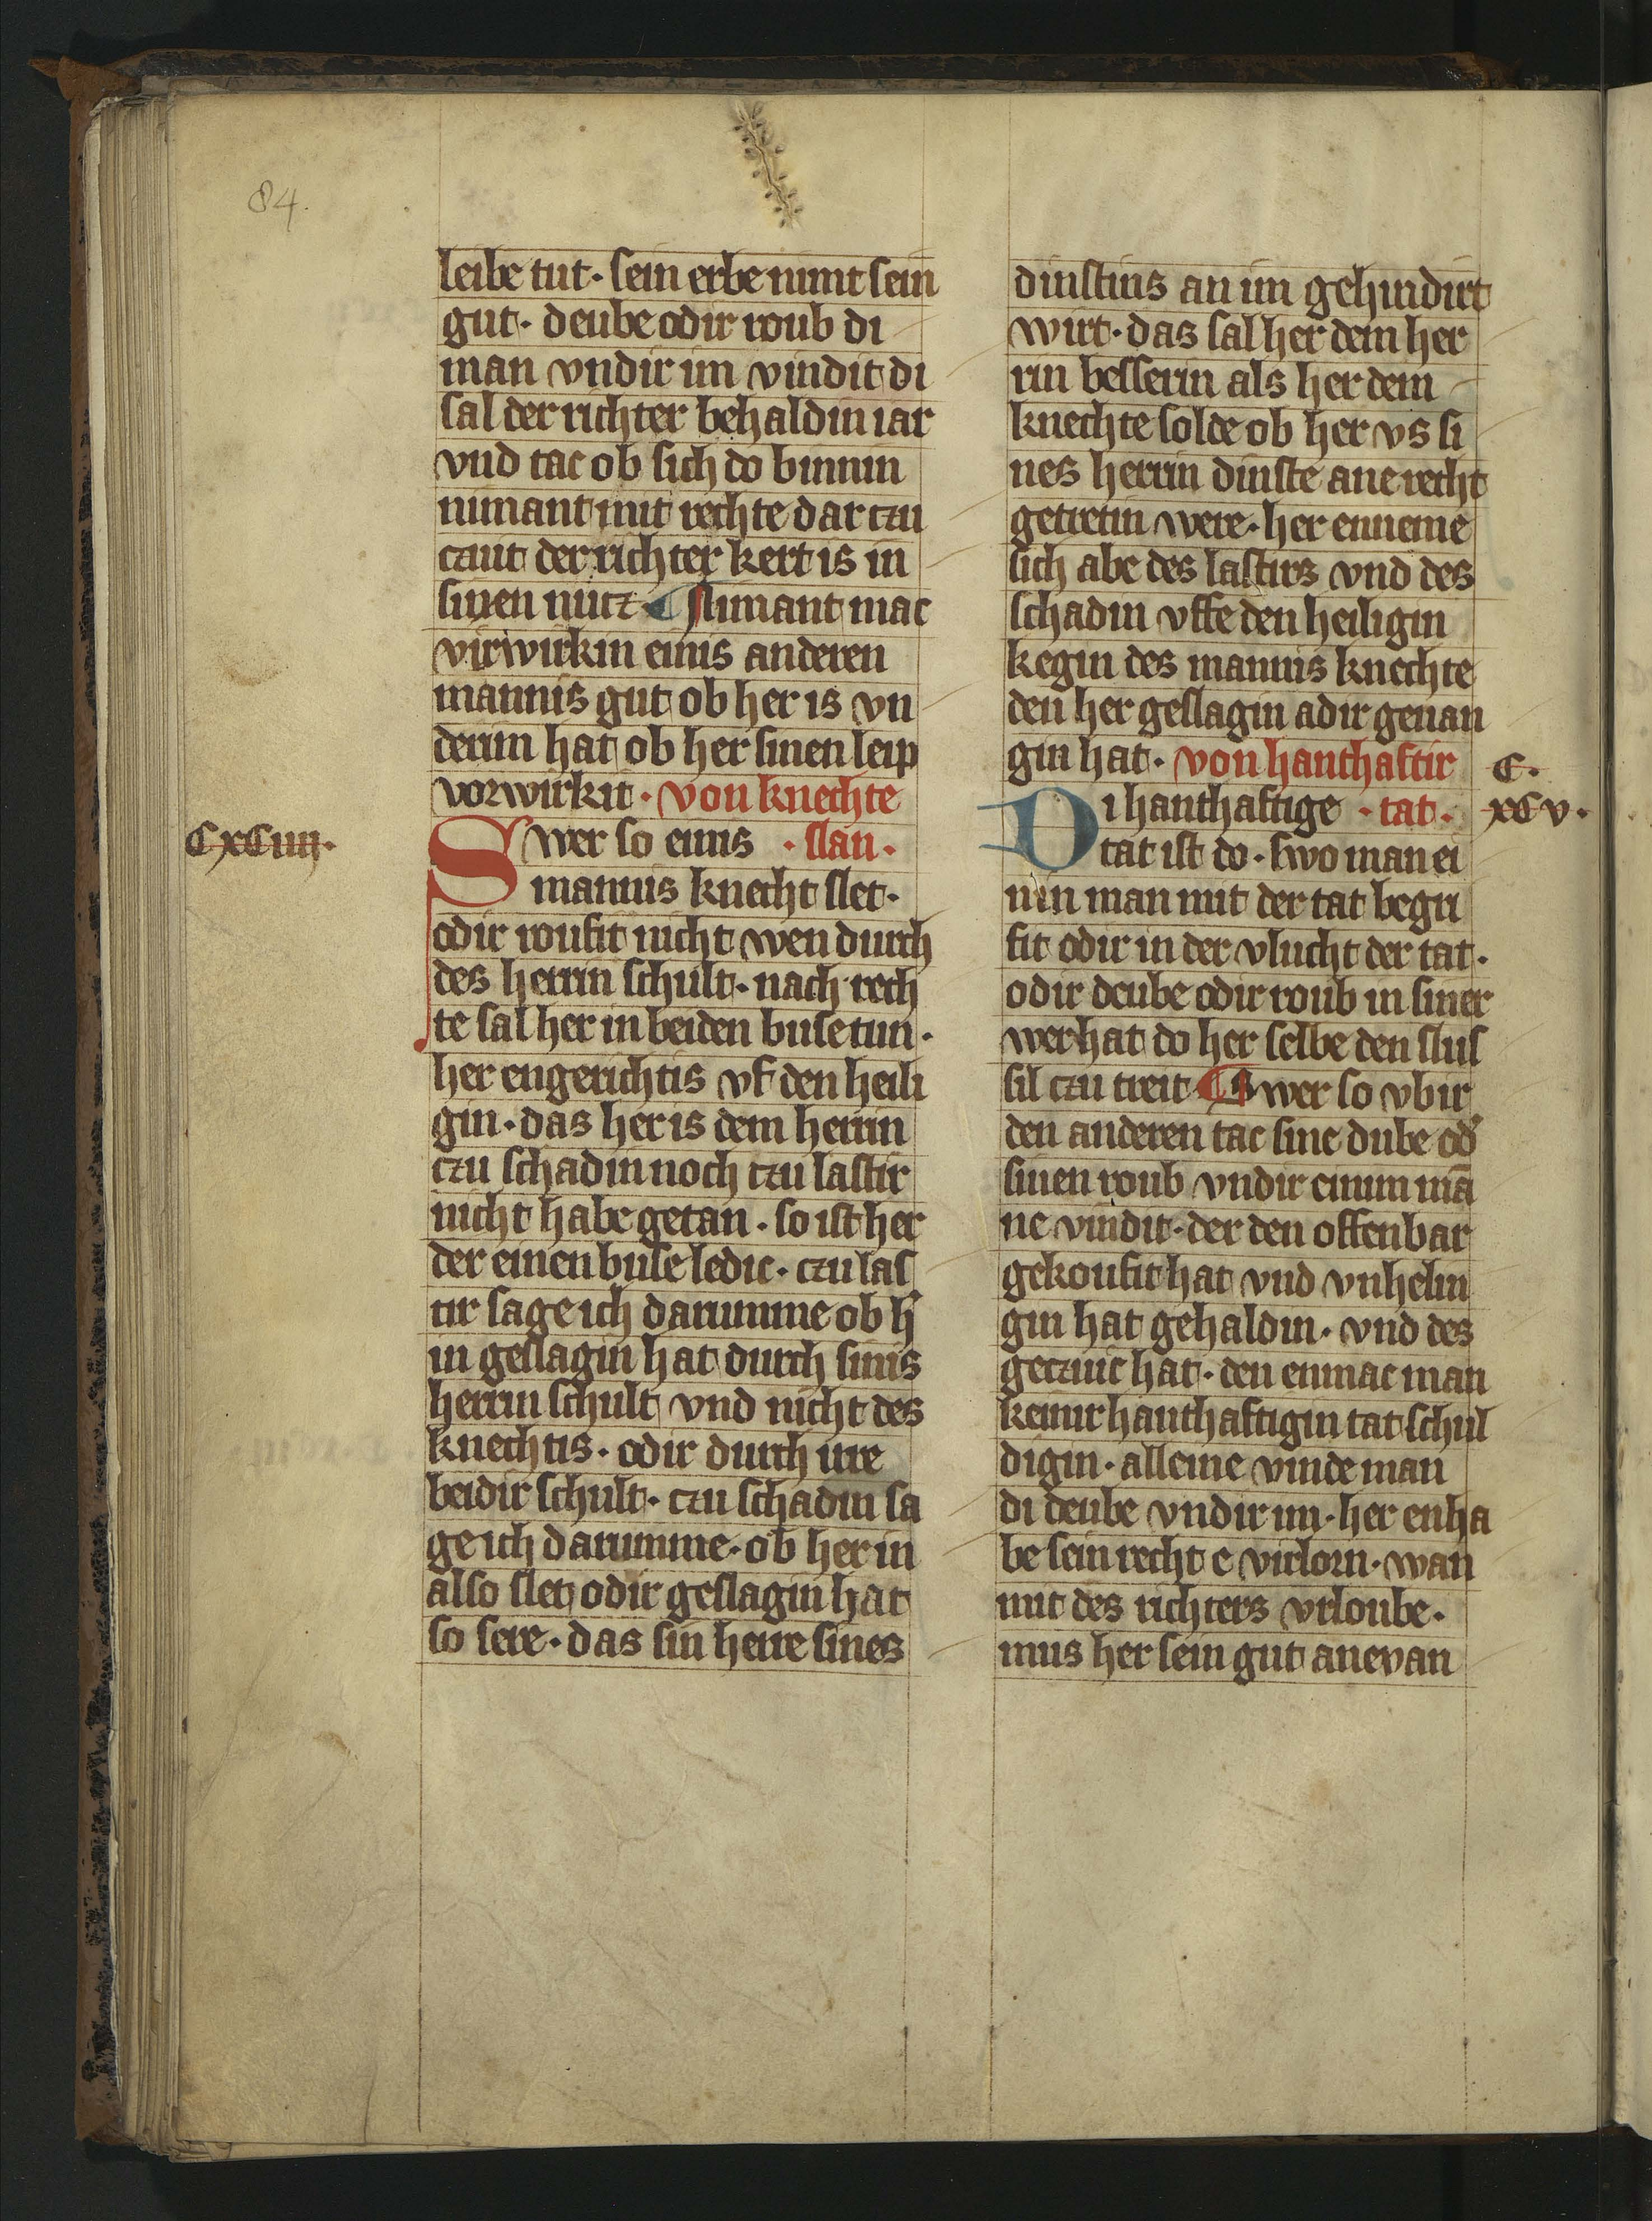 84.
leibe tut · sein erbe nimt sein
gut · deube odir roub di
man vndir im vindit di
sal der richter behaldin iar
vnd tac ob sich do binnin
nimant mit rechte dar czu
czut der richter kert is in
sinen nucz ¶ Nimant mac
virwirkin einis anderen
mannis gut ob her is vn
derim hat ob her sinen leip
vorwirkit · von knechte
CxCiiij.
Swer so einis · slan ·
mannis knecht slet ·
odir roufit nicht wen durch
des herrin schult · nach rech
te sal her in beiden buse tun ·
her engerichtis vf den heili
gin · das her is dem herrin
czu schadin noch czu lastir
nicht habe getan · so ist her
der einen buse ledic · czu las
tir sage ich darumme ob h'
in geslagin hat durch sinis
herrin schult vnd nicht des
knechtis · odir durch ire
beidir schult · czu schadin sa
ge ich darumme · ob her in
also slet odir geslagin hat
so sere · das sin herre sines
dinstins an im gehindirt
wirt · das sal her dem her
rin besserin als her dem
knechte solde ob her vs si
nes herrin dinste ane recht
getretin were · her enneme
sich abe des lastirs vnd des
schadin vffe den heiligin
kegin des mannis knechte
den her geslagin adir geuan
gin hat · von hanthaftir
C.
Di hanthaftige · tat ·
xCv.
tat ist do · swo man ei
nin man mit der tat begri
fit odir in der vlucht der tat ·
odir deube odir roub in siner
wer hat do her selbe den slus
sil czu treit ¶ Swer so vbir
den anderen tac sine dube od'
sinen roub vndir einim mā
ne vindit · der den offenbar
gekoufit hat vnd vnhelin
gin hat gehaldin · vnd des
geczuc hat · den enmac man
keinir hanthaftigin tat schul
digin · alleine vinde man
di deube vndir im · her enha
be sein recht e virlorn · wan
mit des richters vrloube ·
mus her sein gut anevan